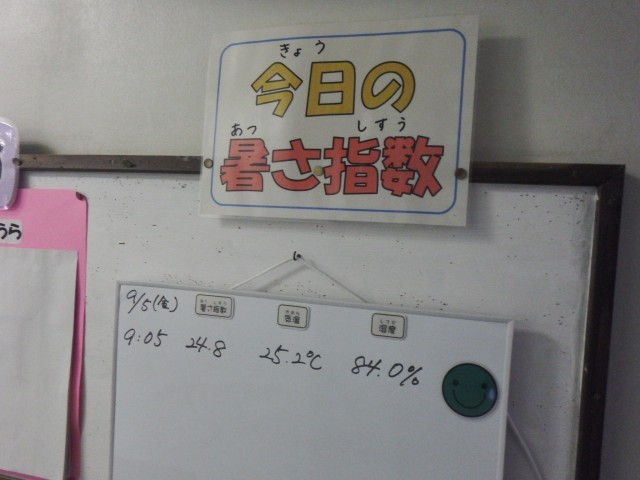 きょう
今日の
あつ しすう
暑さ指数
うら
9/5(金) 暑さ指数 気温 湿度
9:05 24.8 25.2℃ 84.0%